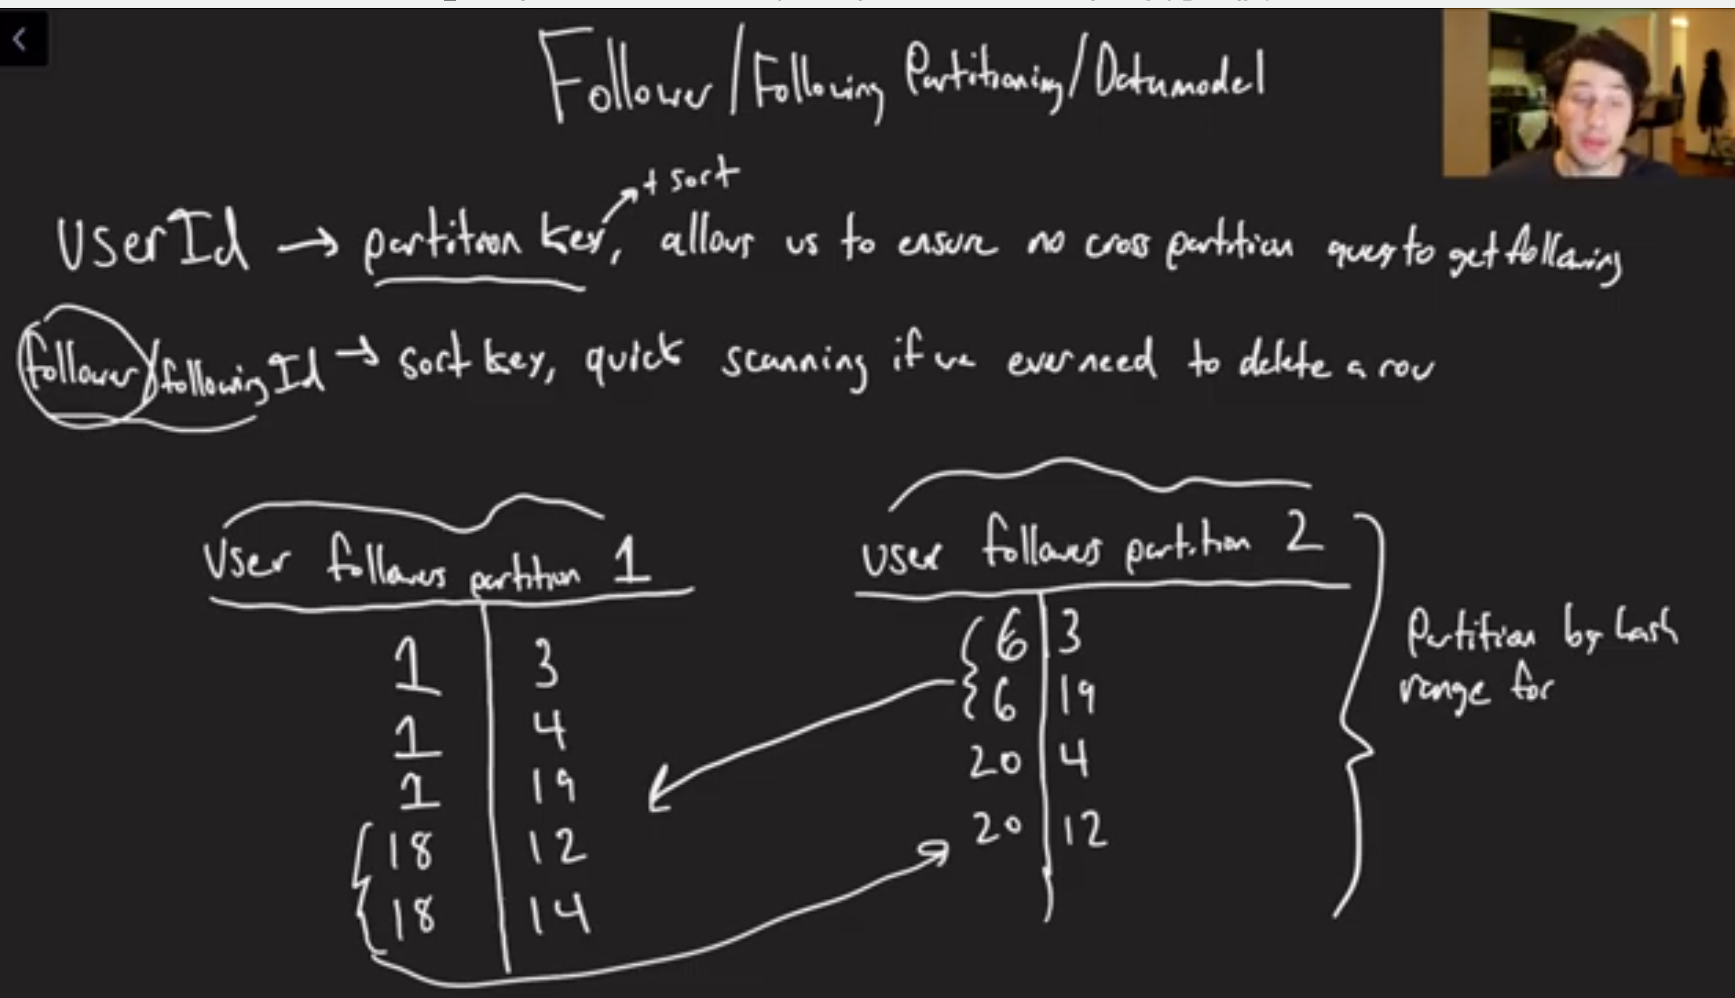 Follower/Following Partitioning/Datamodel
+ sort
UserId → partition key, allows us to ensure no cross partition query to get following
follower/followingId → sort key, quick scanning if we ever need to delete a row
User followers partition 1
1 3
1 4
1 19
18 12
18 14
user followers partition 2
6 3
6 19
20 4
20 12
Partition by hash
range for